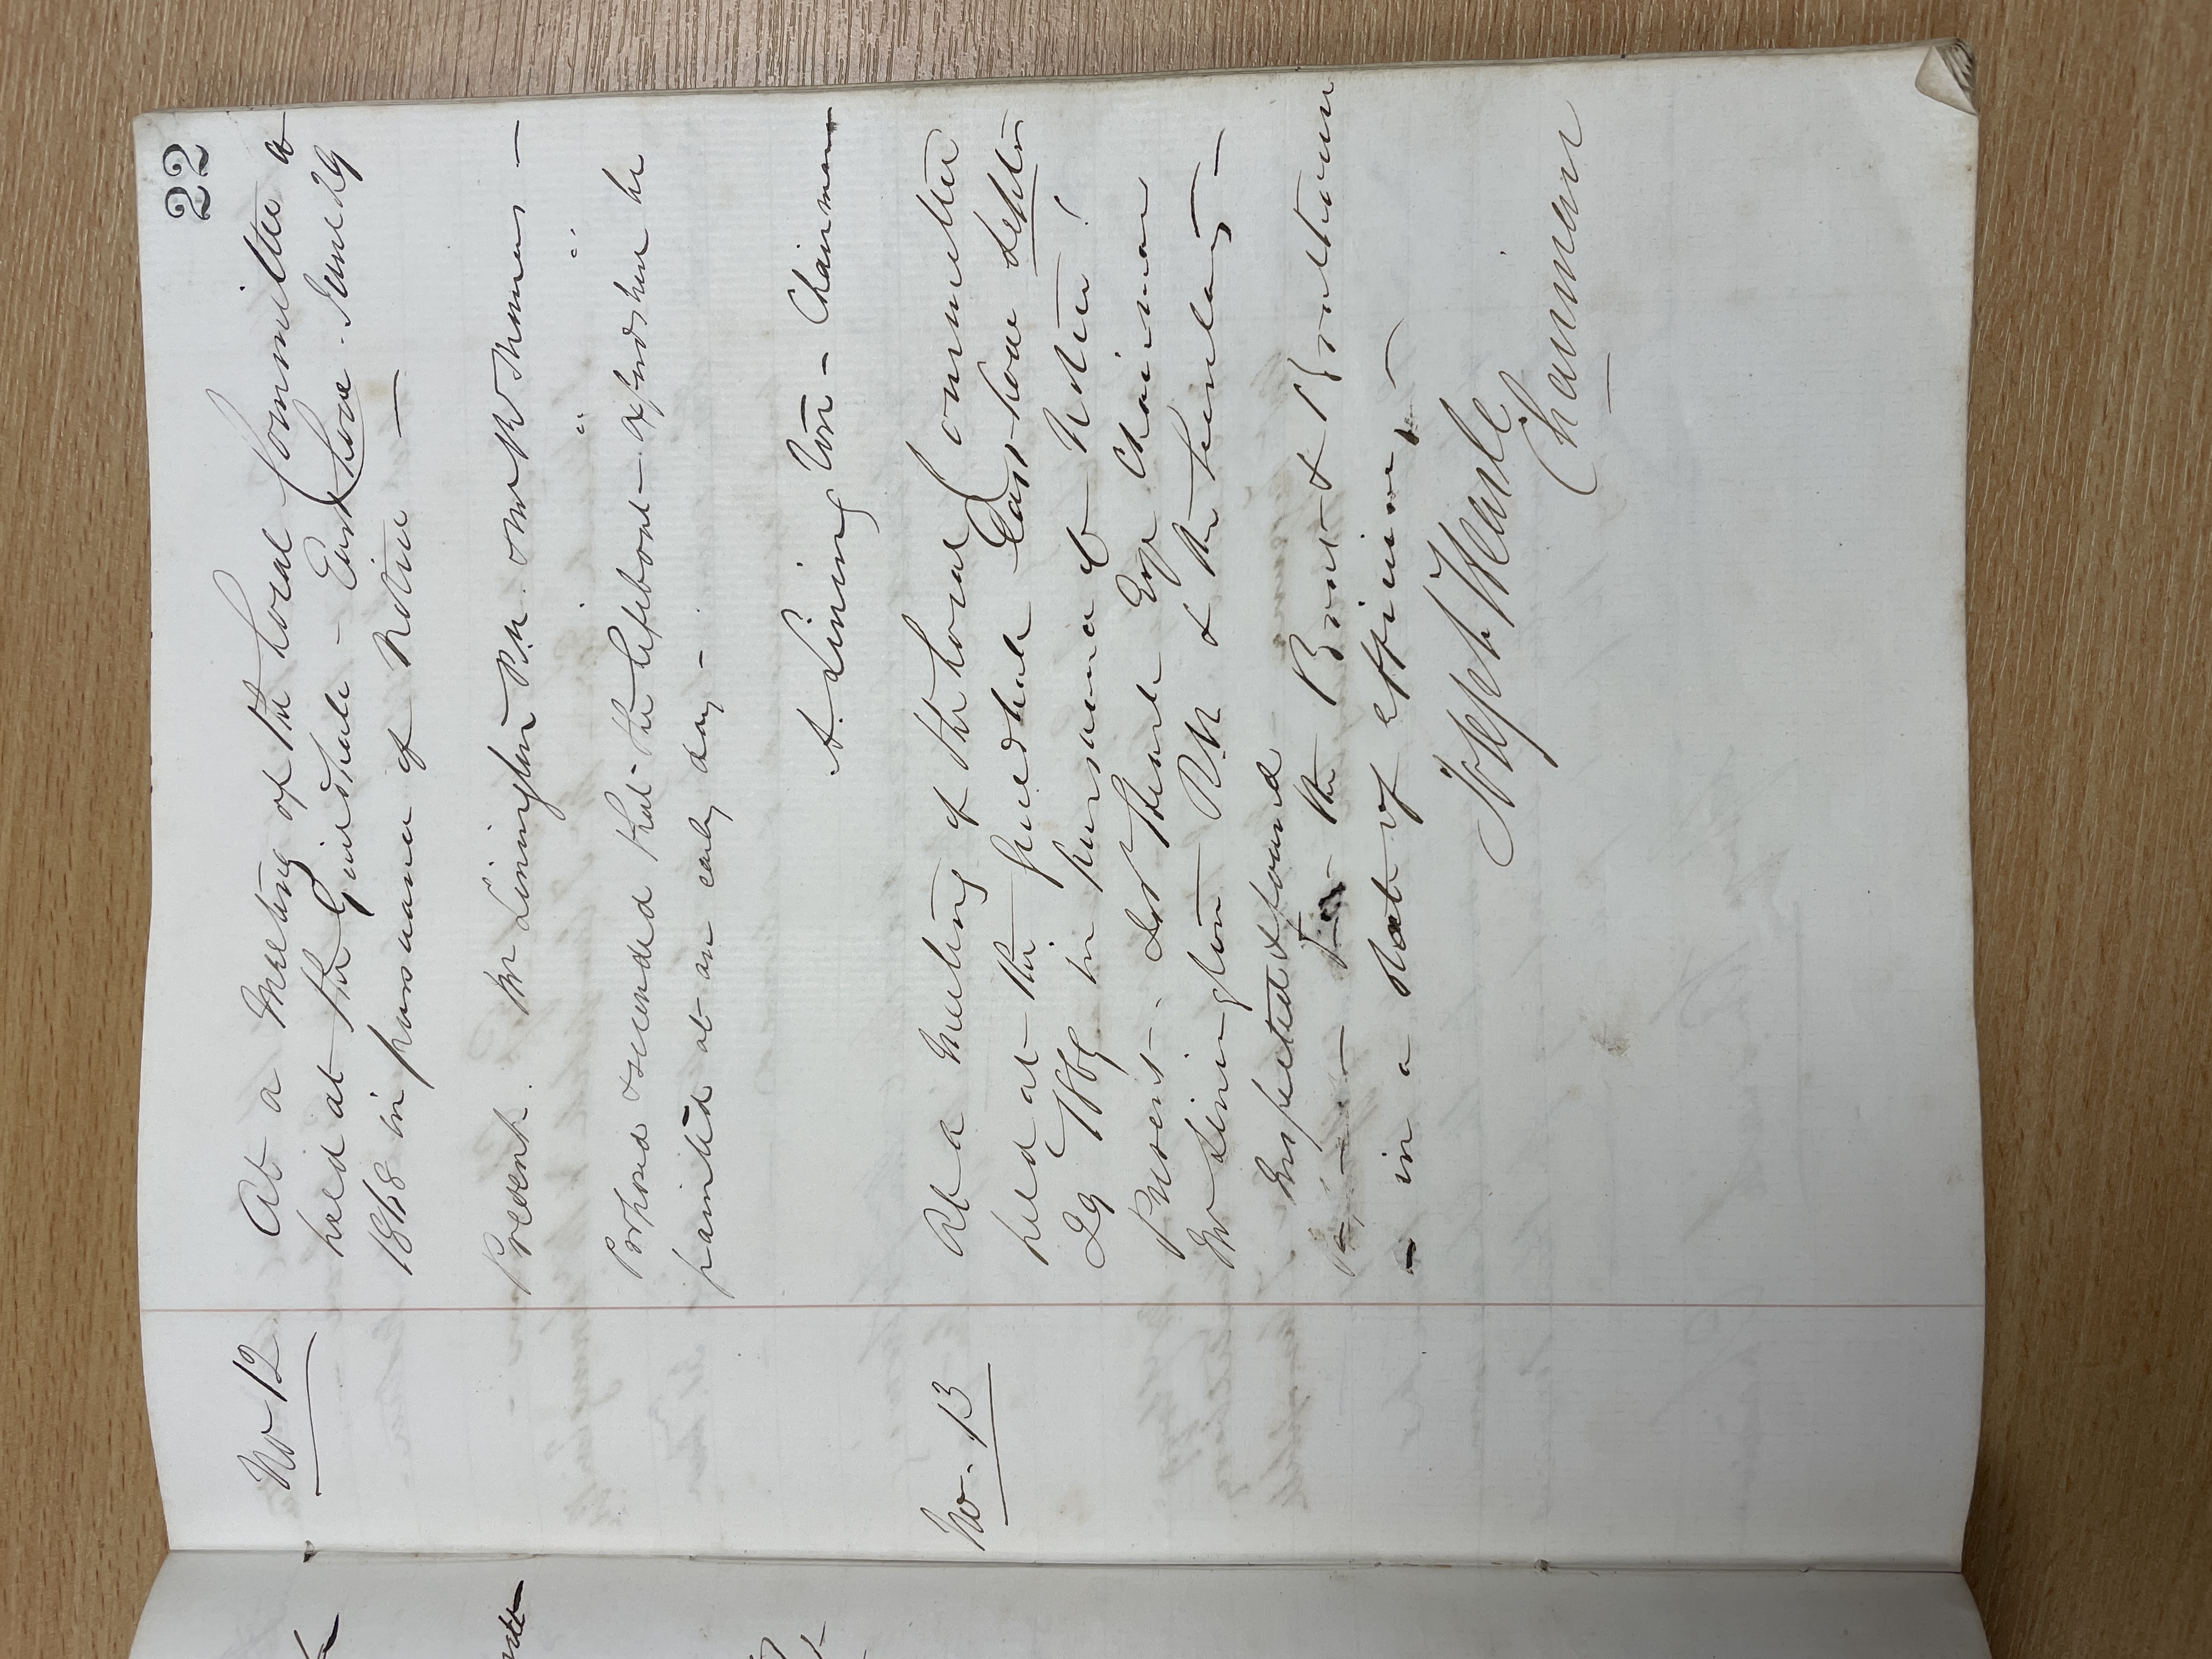 22
No 12
At a Meeting of the Local Committee
held at the Guildhall - East Looe. June 29
1868 in pursuance of Notice —
Present. Mr Livingston R.N. and Mr W Thomas —
Proposed & seconded that the Lifeboat - afsd shou be
painted at an early day -
Livingston - Chairman
No. 13
At a Meeting of the Local Committee
held at the Guildhall East Looe Septr
29 1869 in pursuance to Notice!
Present. Thomas Esqr Chairman
Mr Livingston R.N. & the Secretary —
Inspected & found
the Boat & Boathouse
- in a state of efficiency, —
Joseph Thomas
Chairman